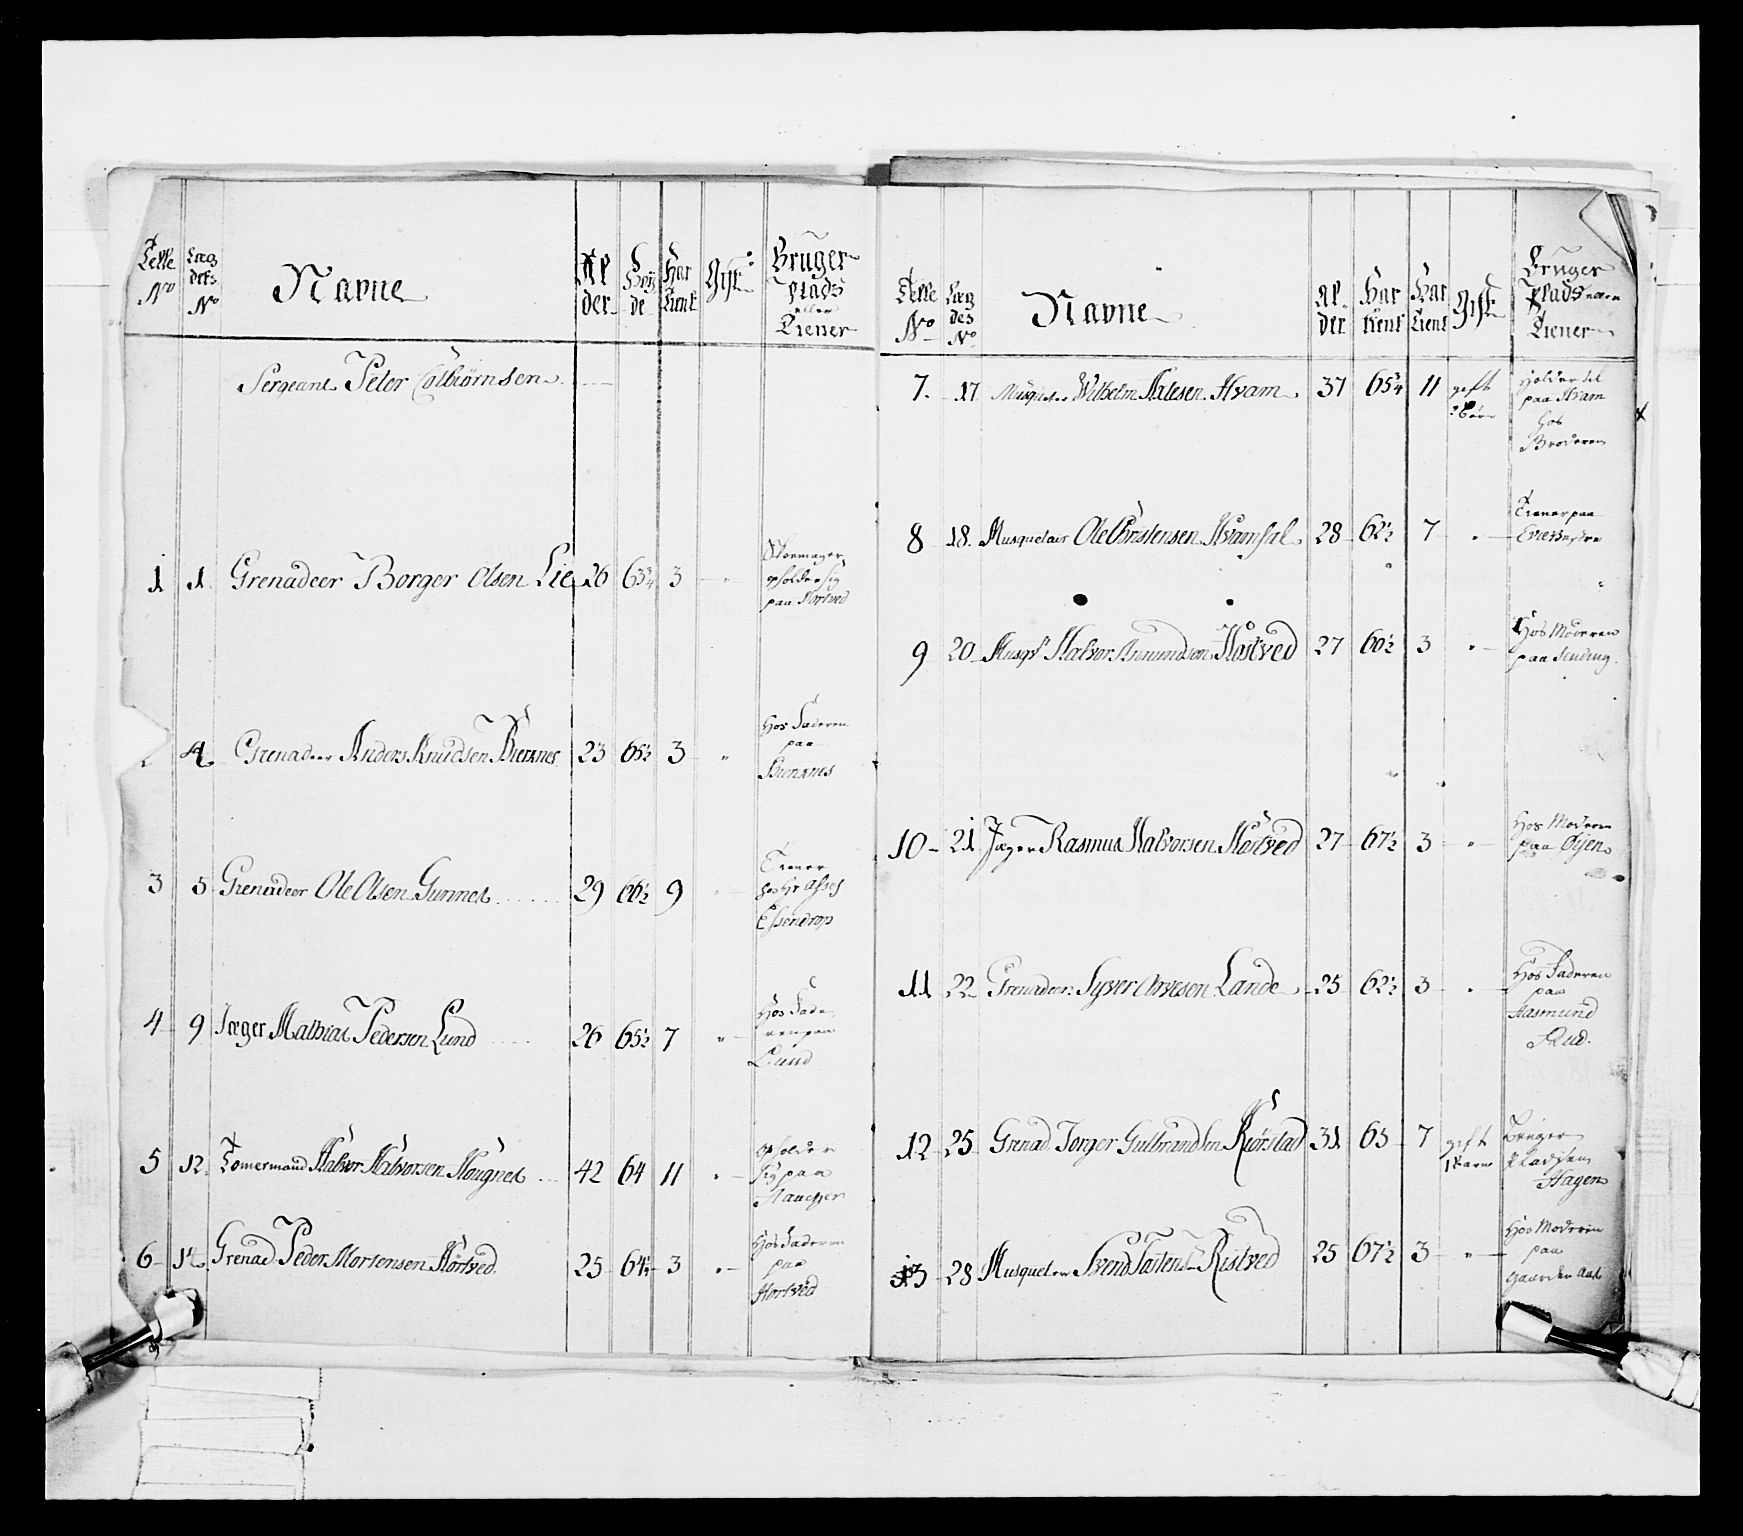 Telle No
Læg dets No
Navne
Al der
Høy de
Har tient
Gift
Bruger Plads eller Tiener
Sergeant Peter Colbiørnsen
1 1 Grenadeer Borger Olsen Lie 26 63¾ 3 " Skoemager opholder sig paa Hortved
4 Grenadeer Anders Knudsen Bierknes 23 65½ 3 " Hos Faderen paa Bierknes
3 5 Grenadeer Ole Olsen 29 66½ 9 " Tiener hos Hr Essendrop
4 9 Jæger Mathias Pedersen Lund 26 65½ 7 " Hos Faderen paa Lund
5 12 Tømermand Halvor Halvorsen 42 64 11 " opholder sig paa
6 14 Grenad Peder Mortensen Hørtved 25 64½ 3 " Hos Faderen paa Hortved
Telle No
Læg des No
Navne
Al der
Har tient
Har tient
Gift
Bruger Plads Tiener
7. 17 Musqueteer Wilhelm Hvam 37 65¾ 11 gift 2 Børn Holder til paa Hvam hos Broderen
8 18. Musqueteer Ole Christensen 28 62½ 7 " Tiener paa
9 20 Musqt Halvor Amundsen Høstved 27 60½ 3 " Hos Moderen paa
10 21 Jæger Rasmus Halvorsen Høstved 27 67½ 3 " Hos Moderen paa Øijen
11 22 Grenadeer Syver Arvesen Lande 25 62½ 3 " Hos Faderen paa Aasmund Rud.
12 25 Grenad Torger Gulbrandsen Kiørstad 31 63 7 gift 1 Barn Bruger Pladsen Hagen
13 28 Musqueteer Svend Ristved 25 67½ 3 " Hos Moderen paa gaarden Aas